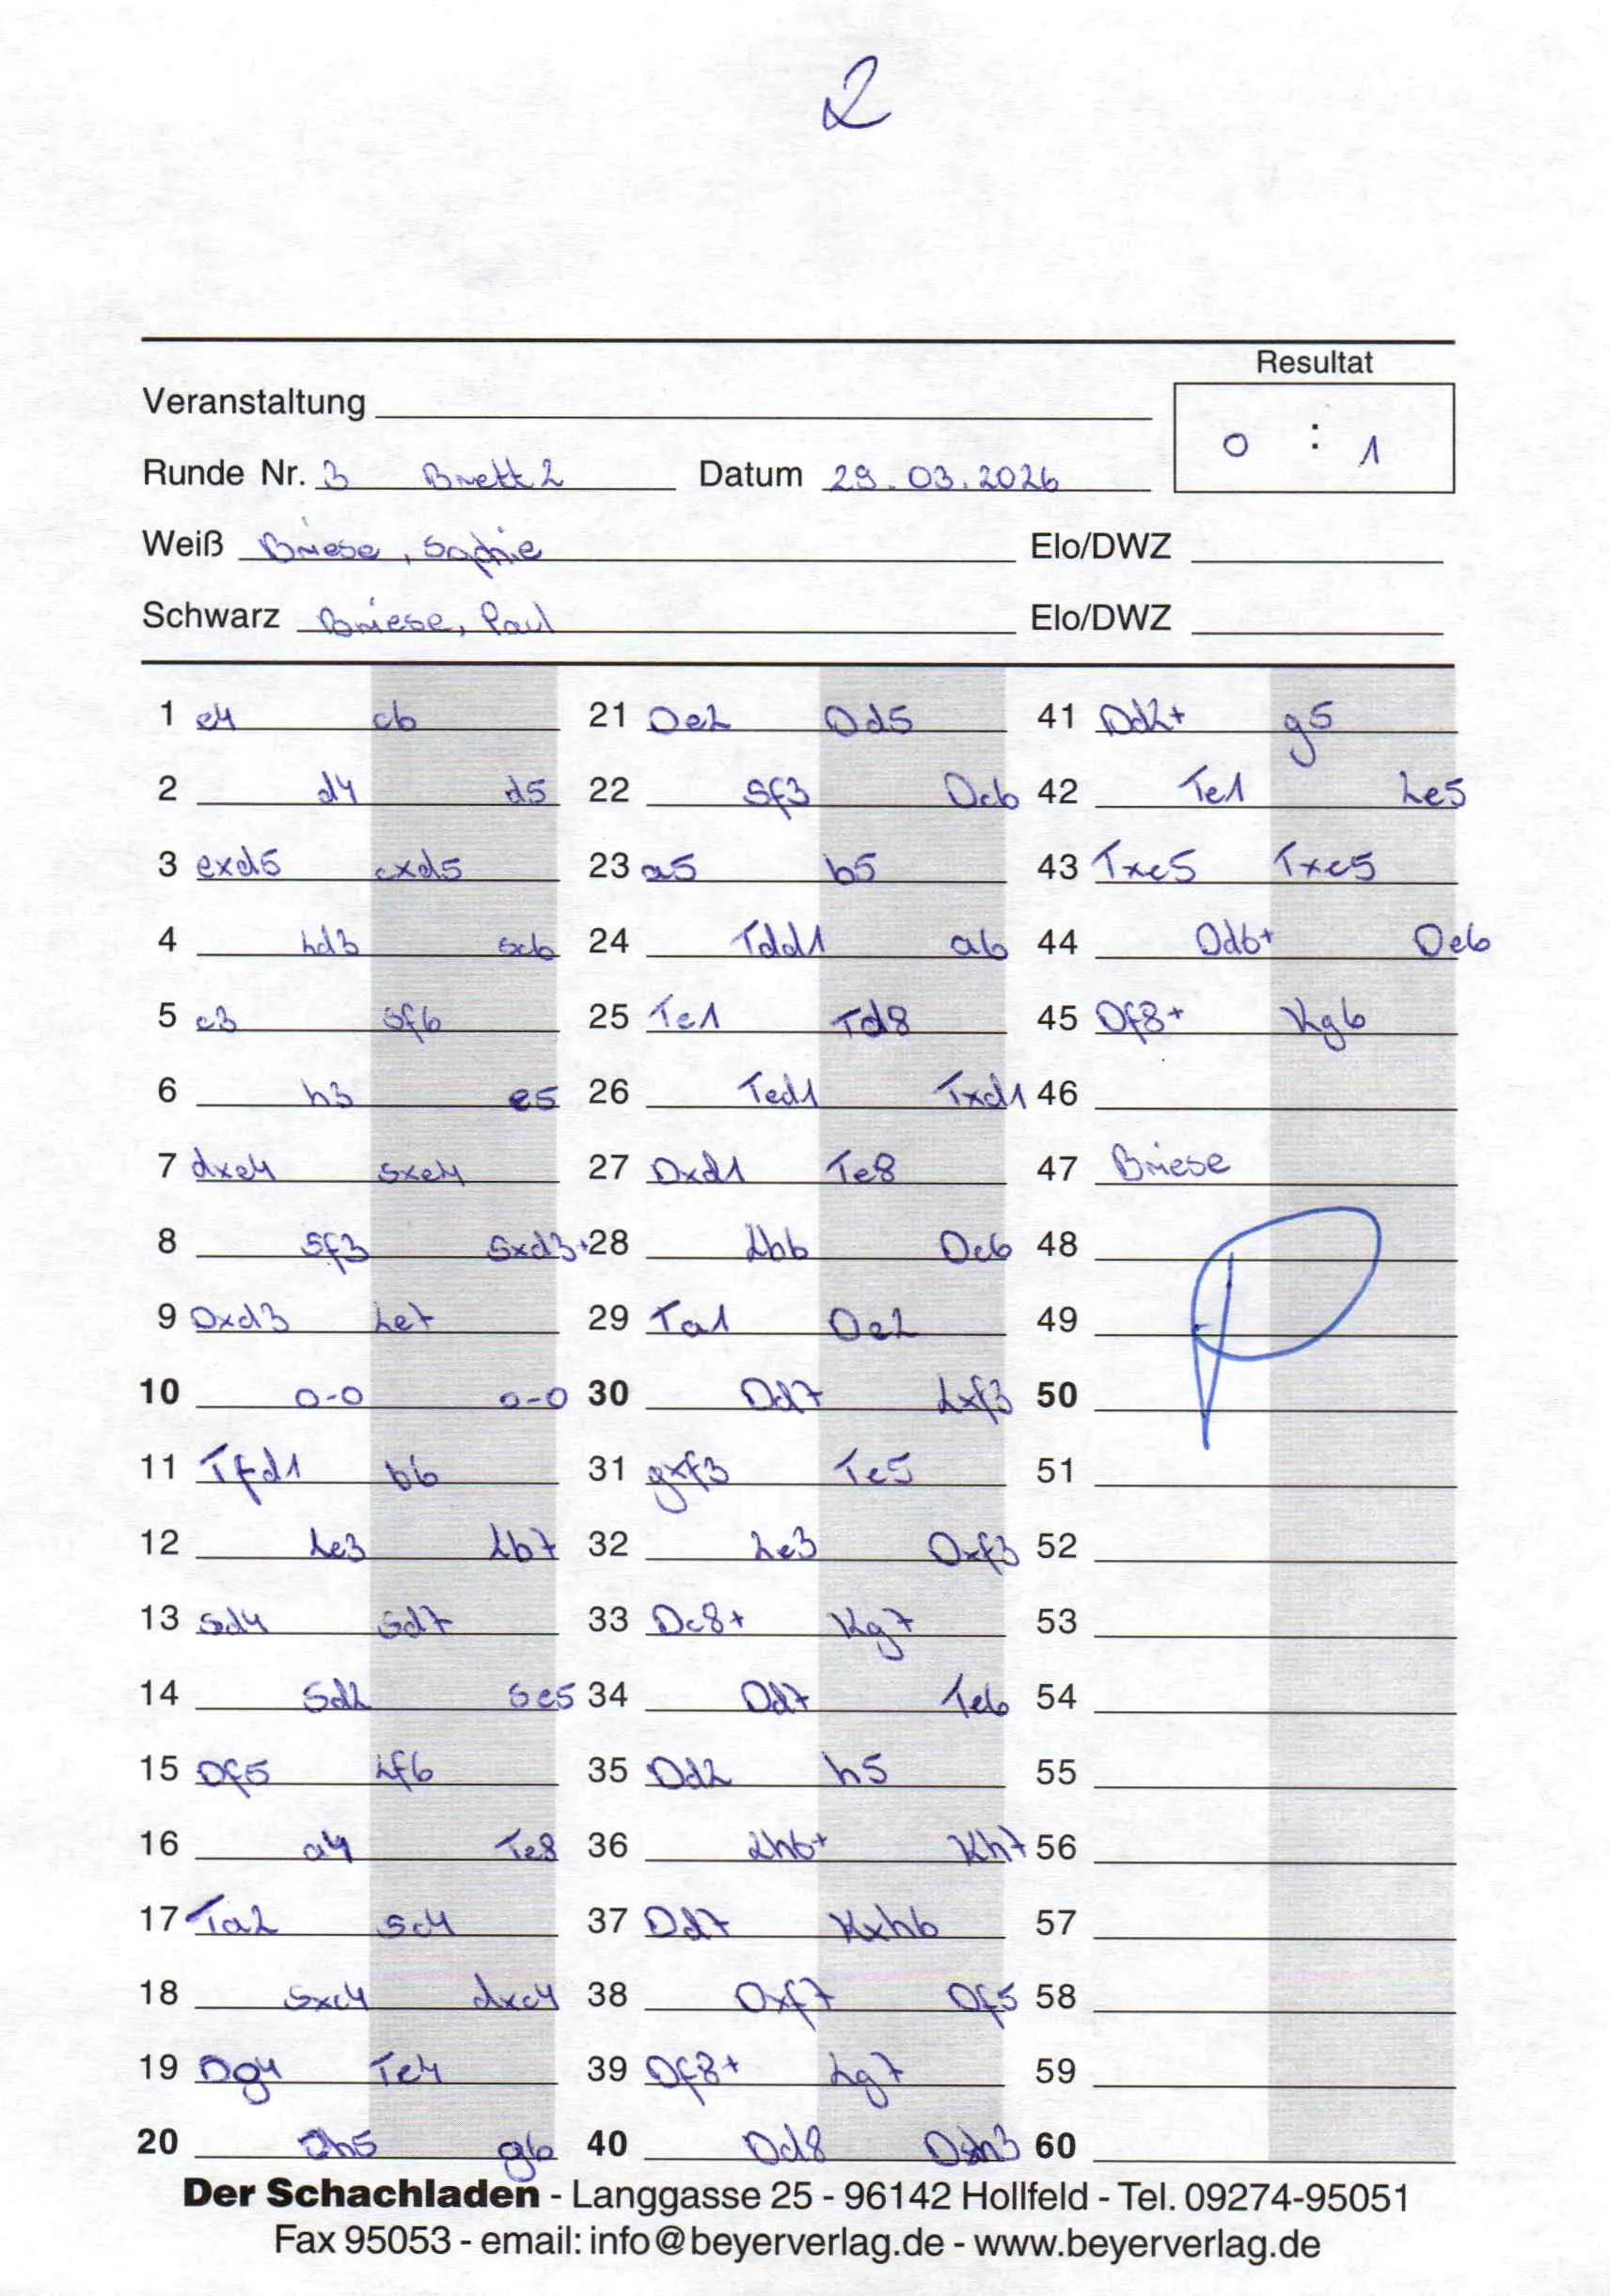 2
Resultat
Veranstaltung
0 : 1
Runde Nr. 3 Brett 2 Datum 29.03.2026
Weiß Briese, Sophie Elo/DWZ
Schwarz Briese, Paul Elo/DWZ
1 e4 c6 21 De2 Dd5 41 Dd2+ g5
2 d4 d5 22 Sf3 Dc6 42 Te1 Le5
3 exd5 cxd5 23 a5 b5 43 Txe5 Txe5
4 Ld3 Sc6 24 Tdd1 a6 44 Dd6+ De6
5 c3 Sf6 25 Te1 Td8 45 Df8+ Kg6
6 h3 e5 26 Ted1 Txd1 46
7 dxe4 Sxe4 27 Dxd1 Te8 47 Briese
8 Sf3 Sxd3+ 28 Lh6 Dc6 48
9 Dxd3 Le7 29 Ta1 De2 49
10 0-0 0-0 30 Dd7 Lxf3 50
11 Tfd1 b6 31 gxf3 Te5 51
12 Le3 Lb7 32 Le3 Dxf3 52
13 Sd4 Sd7 33 Dc8+ Kg7 53
14 Sd2 Sc5 34 Dd7 Te6 54
15 Df5 Lf6 35 Dd2 h5 55
16 a4 Te8 36 Lh6+ Kh7 56
17 Ta2 Sc4 37 Dd7 Kxh6 57
18 Sxc4 dxc4 38 Dxf7 Df5 58
19 Dg4 Te4 39 Df8+ Lg7 59
20 Dh5 g6 40 Dd8 Dxh3 60
Der Schachladen - Langgasse 25 - 96142 Hollfeld - Tel. 09274-95051
Fax 95053 - email: info@beyerverlag.de - www.beyerverlag.de